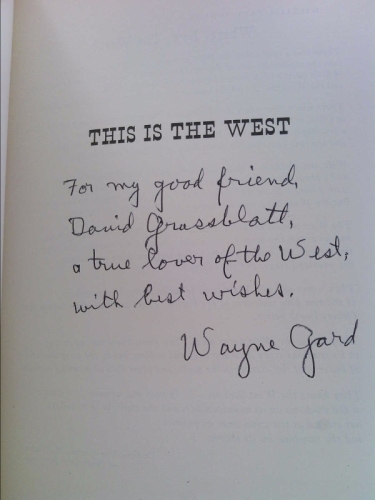 THIS IS THE WEST
For my good friend,
David Grassblatt,
a true lover of the West,
with best wishes.
Wayne Gard